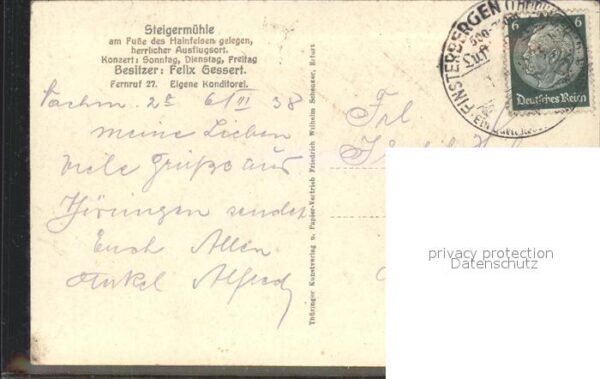 Steigermühle
am Fuße des Hainfelsen gelegen,
herrlicher Ausflugsort.
Konzert: Sonntag, Dienstag, Freitag
Besitzer: Felix Gessert.
Fernruf 27. Eigene Konditorei.
38
meine Lieben
viele Grüße aus
sendet
Euch Allen
Onkel Alfred
Thüringer Kunstverlag u. Papier-Vertrieb Friedrich Wilhelm Schenzer, Erfurt
Frl
FINSTERBERGEN
6 6
Deutsches Reich
privacy protection
Datenschutz